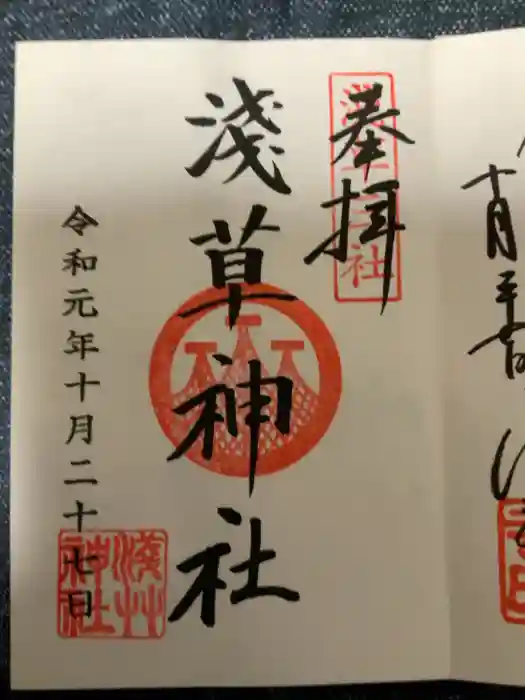 奉拝
浅草三社
淺草神社
令和元年十月二十七日
淺艸
神社